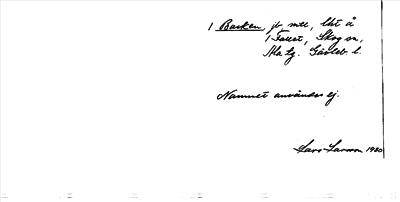 1 Backen, jb mtl, lht å
1 Faset, Skog sn,
Ala tg. Gävleb. l.
Namnet användes ej.
Lars Larsson 1930